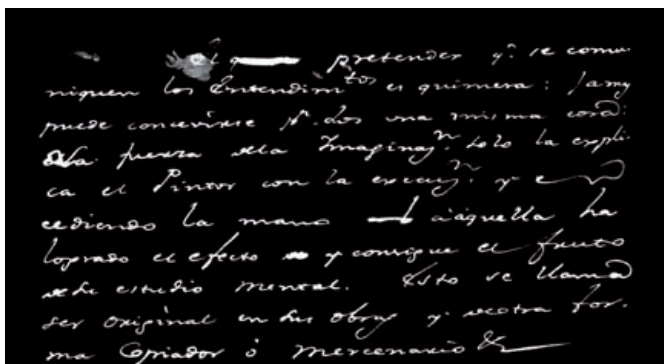 pretender q.e se comu-
niquen los Entendim.tos es quimera: Jamas
puede concevirse p.r dos una misma cosa:
la fuerza dela Imaginaz.n solo la expli-
ca el Pintor con la execuz.n y
cediendo la mano à aquella ha
logrado el efecto y consigue el fruto
de su estudio mental. Esto se llama
ser original en sus obras y de otra for-
ma Copiador ò mercenario &